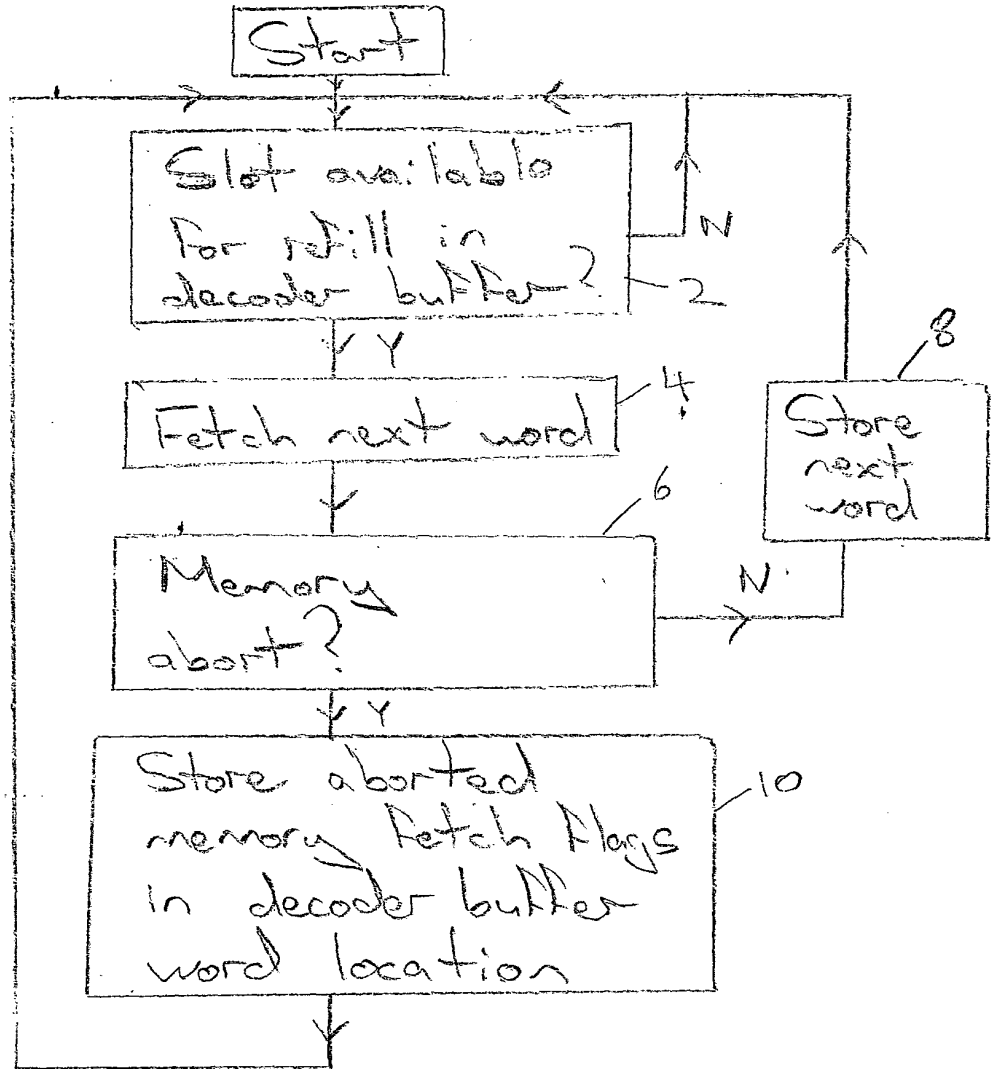 Start
Slot available
for refill in
decoder buffer?
N
2
Y
Fetch next word
4
8
Store
next
word
6
Memory
abort?
N
Y
Store aborted
memory fetch flags
in decoder buffer
word location
10